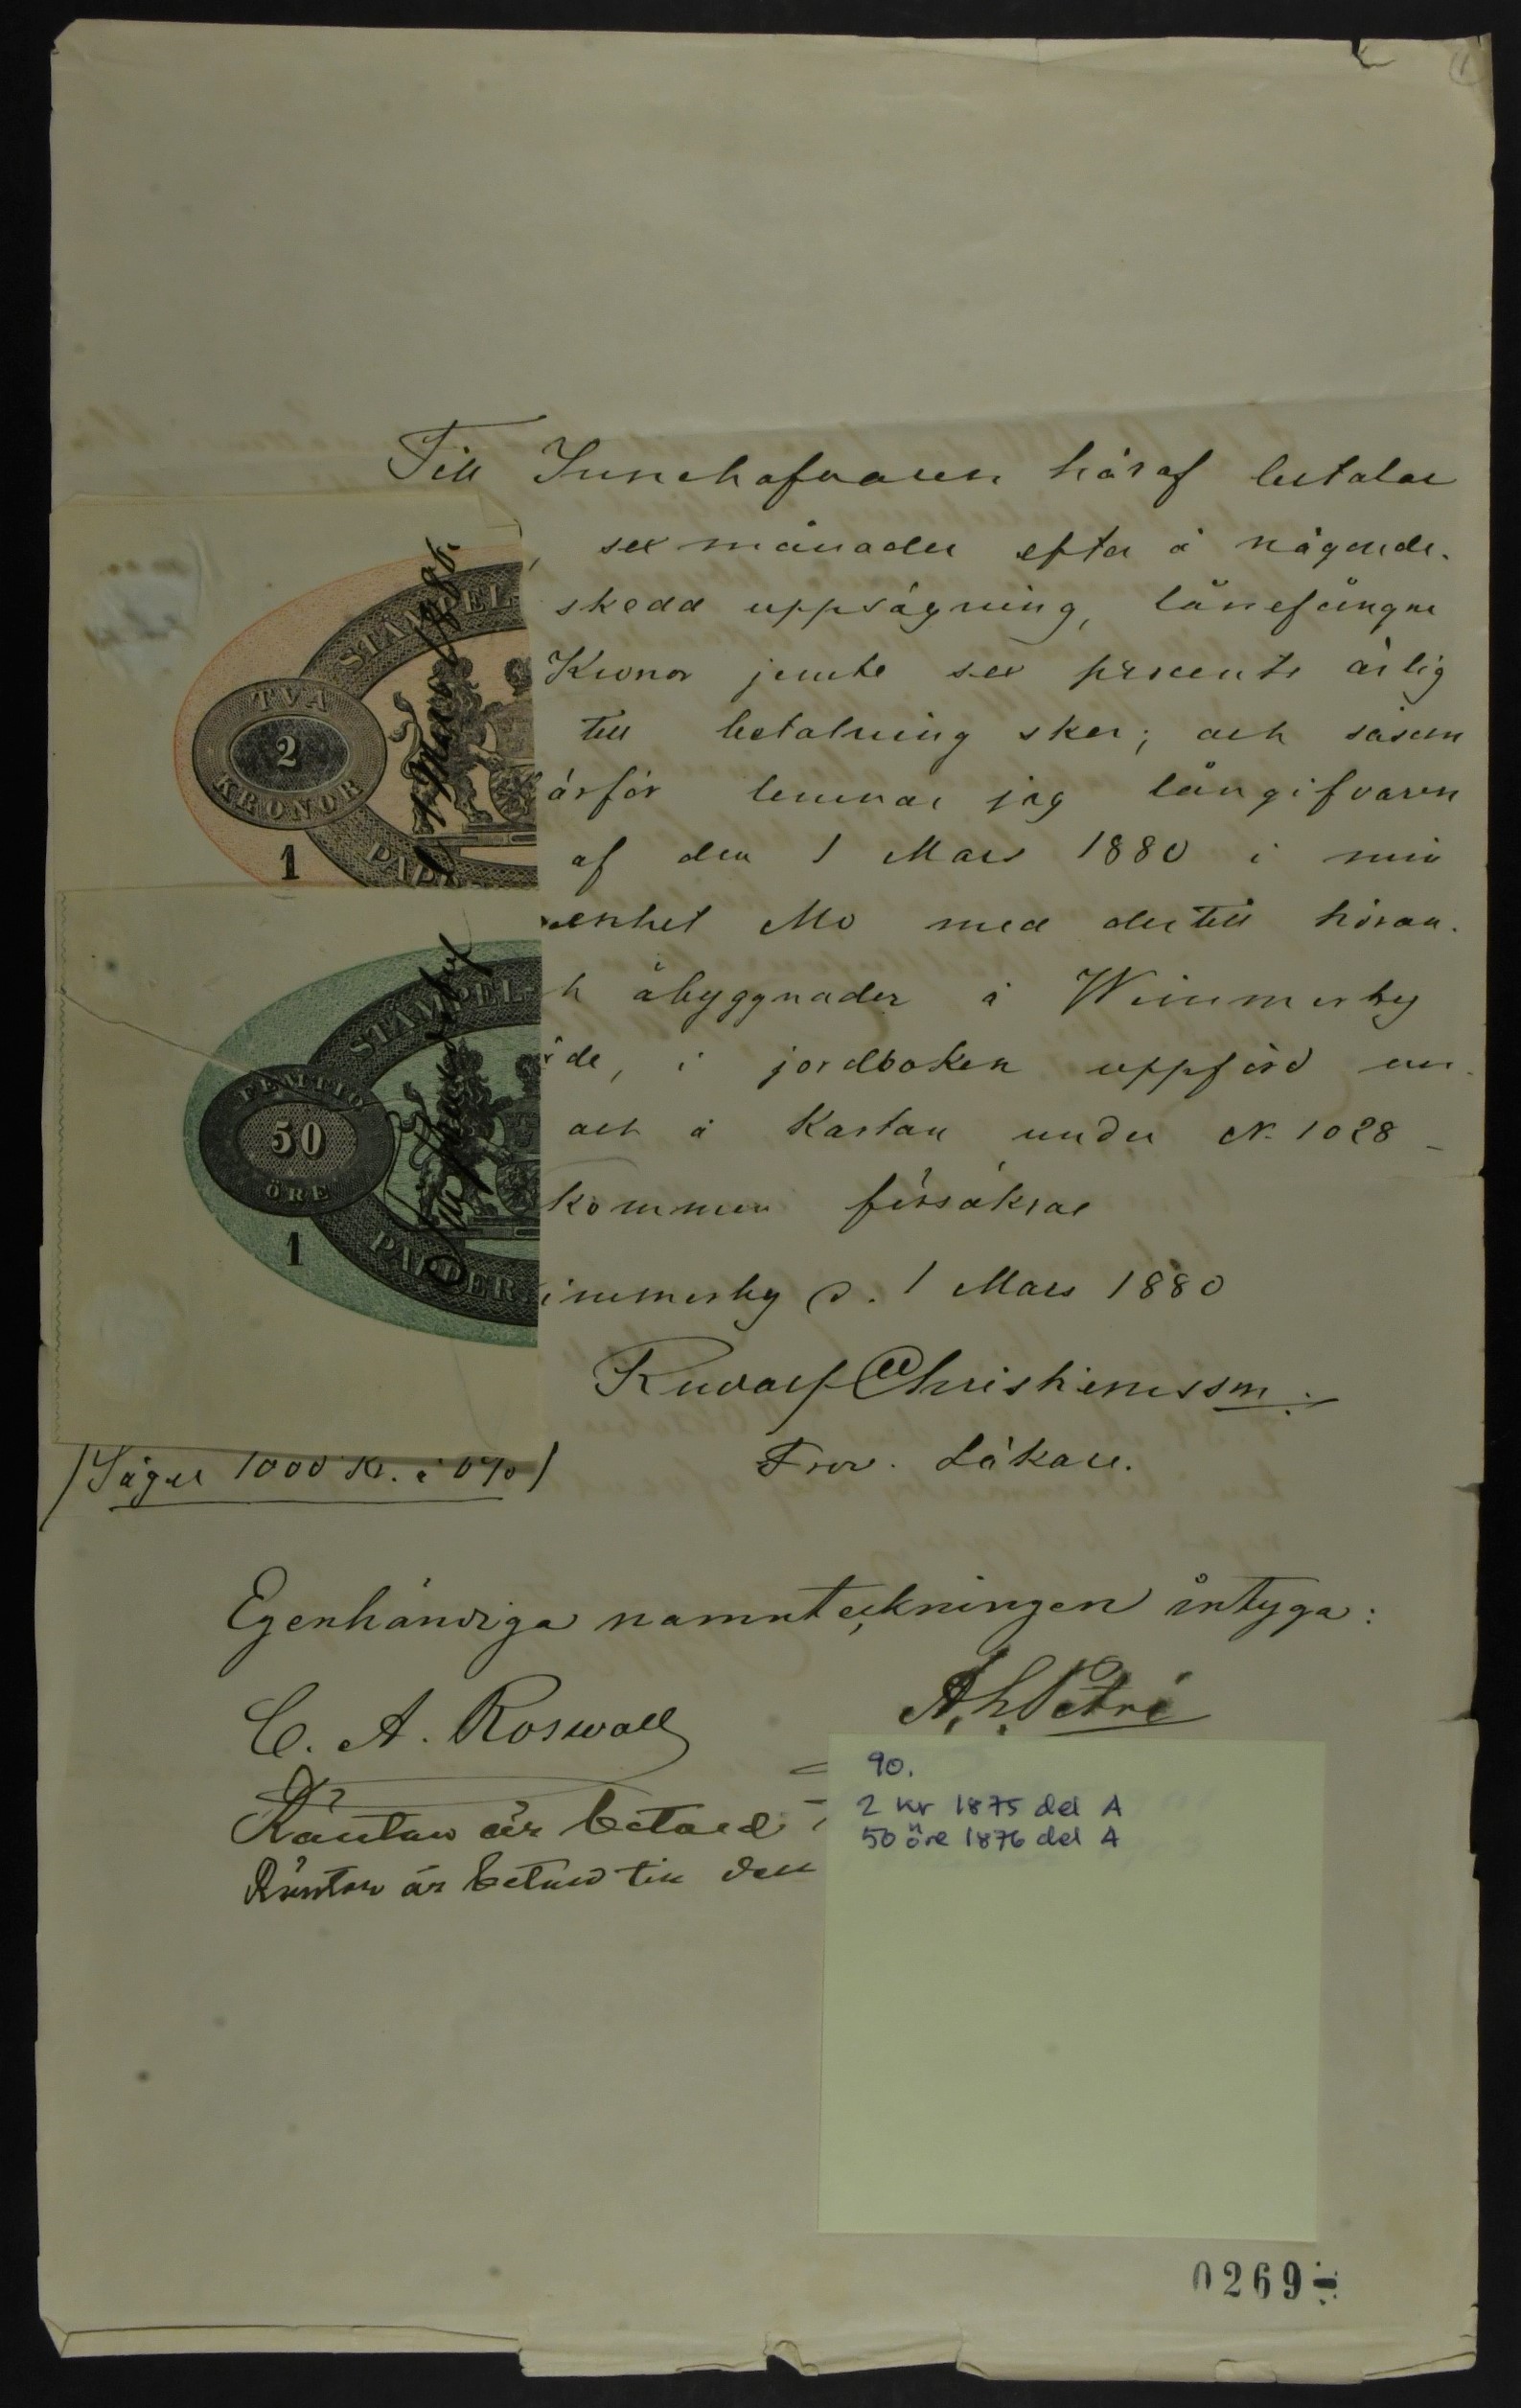 Till Innehafvaren häraf betalar
sex månader efter å någonde-
skedd uppsägning, lånefångne
Kronor jemte sex procents årlig
till betalning sker; och såsom
ärför lemnar jag långifvaren
af den 1 Mars 1880 i min
enhet Mo med dertill höran-
h åbyggnader å Wimmerby
de, i jordboken uppförd un-
och å Kartan under N. 1028 -
kommen försäkras
immerby d. 1 Mars 1880
Rudolf Christiernsson.
Prov. Läkare.
STÄMPEL
TVÅ
2
KRONOR
1
PAPP
1 Mars 1880.
STÄMPEL
FEMTIO
50
ÖRE
1
PAPPER
/Säger 1000 Kr. à 6%/
Egenhändiga namnteckningen intyga:
C. A. Roswall
A. L. Petré
Räntan är betald
Räntan är betald till den
90.
2 kr 1875 del A
50 öre 1876 del A
0269